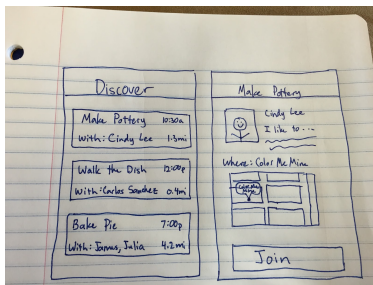 Discover
Make Pottery 10:30a
With: Cindy Lee 1.3mi
Walk the Dish 12:00p
With: Carlos Sanchez 0.4mi
Bake Pie 7:00p
With: James, Julia 4.2mi
Make Pottery
Cindy Lee
I like to ...
Where: Color Me Mine
Color Me
Mine
Join